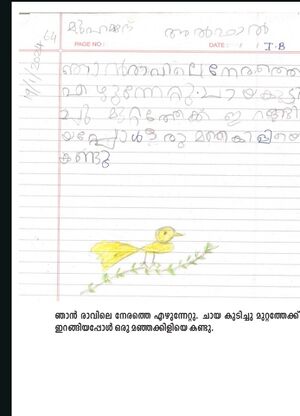 64 മുഹമ്മദ് അൽഫാൽ
PAGE NO.: DATE: / / I-B
19/1/2024
ഞാൻ രാവിലെ നേരത്തെ
എഴുന്നേറ്റു. ചായ കുടി
ച്ചു മുറ്റത്തേക്ക് ഇറങ്ങി
യപ്പോൾ ഒരു മഞ്ഞകിളിയെ
കണ്ടു
ഞാൻ രാവിലെ നേരത്തെ എഴുന്നേറ്റു. ചായ കുടിച്ചു മുറ്റത്തേക്ക്
ഇറങ്ങിയപ്പോൾ ഒരു മഞ്ഞക്കിളിയെ കണ്ടു.